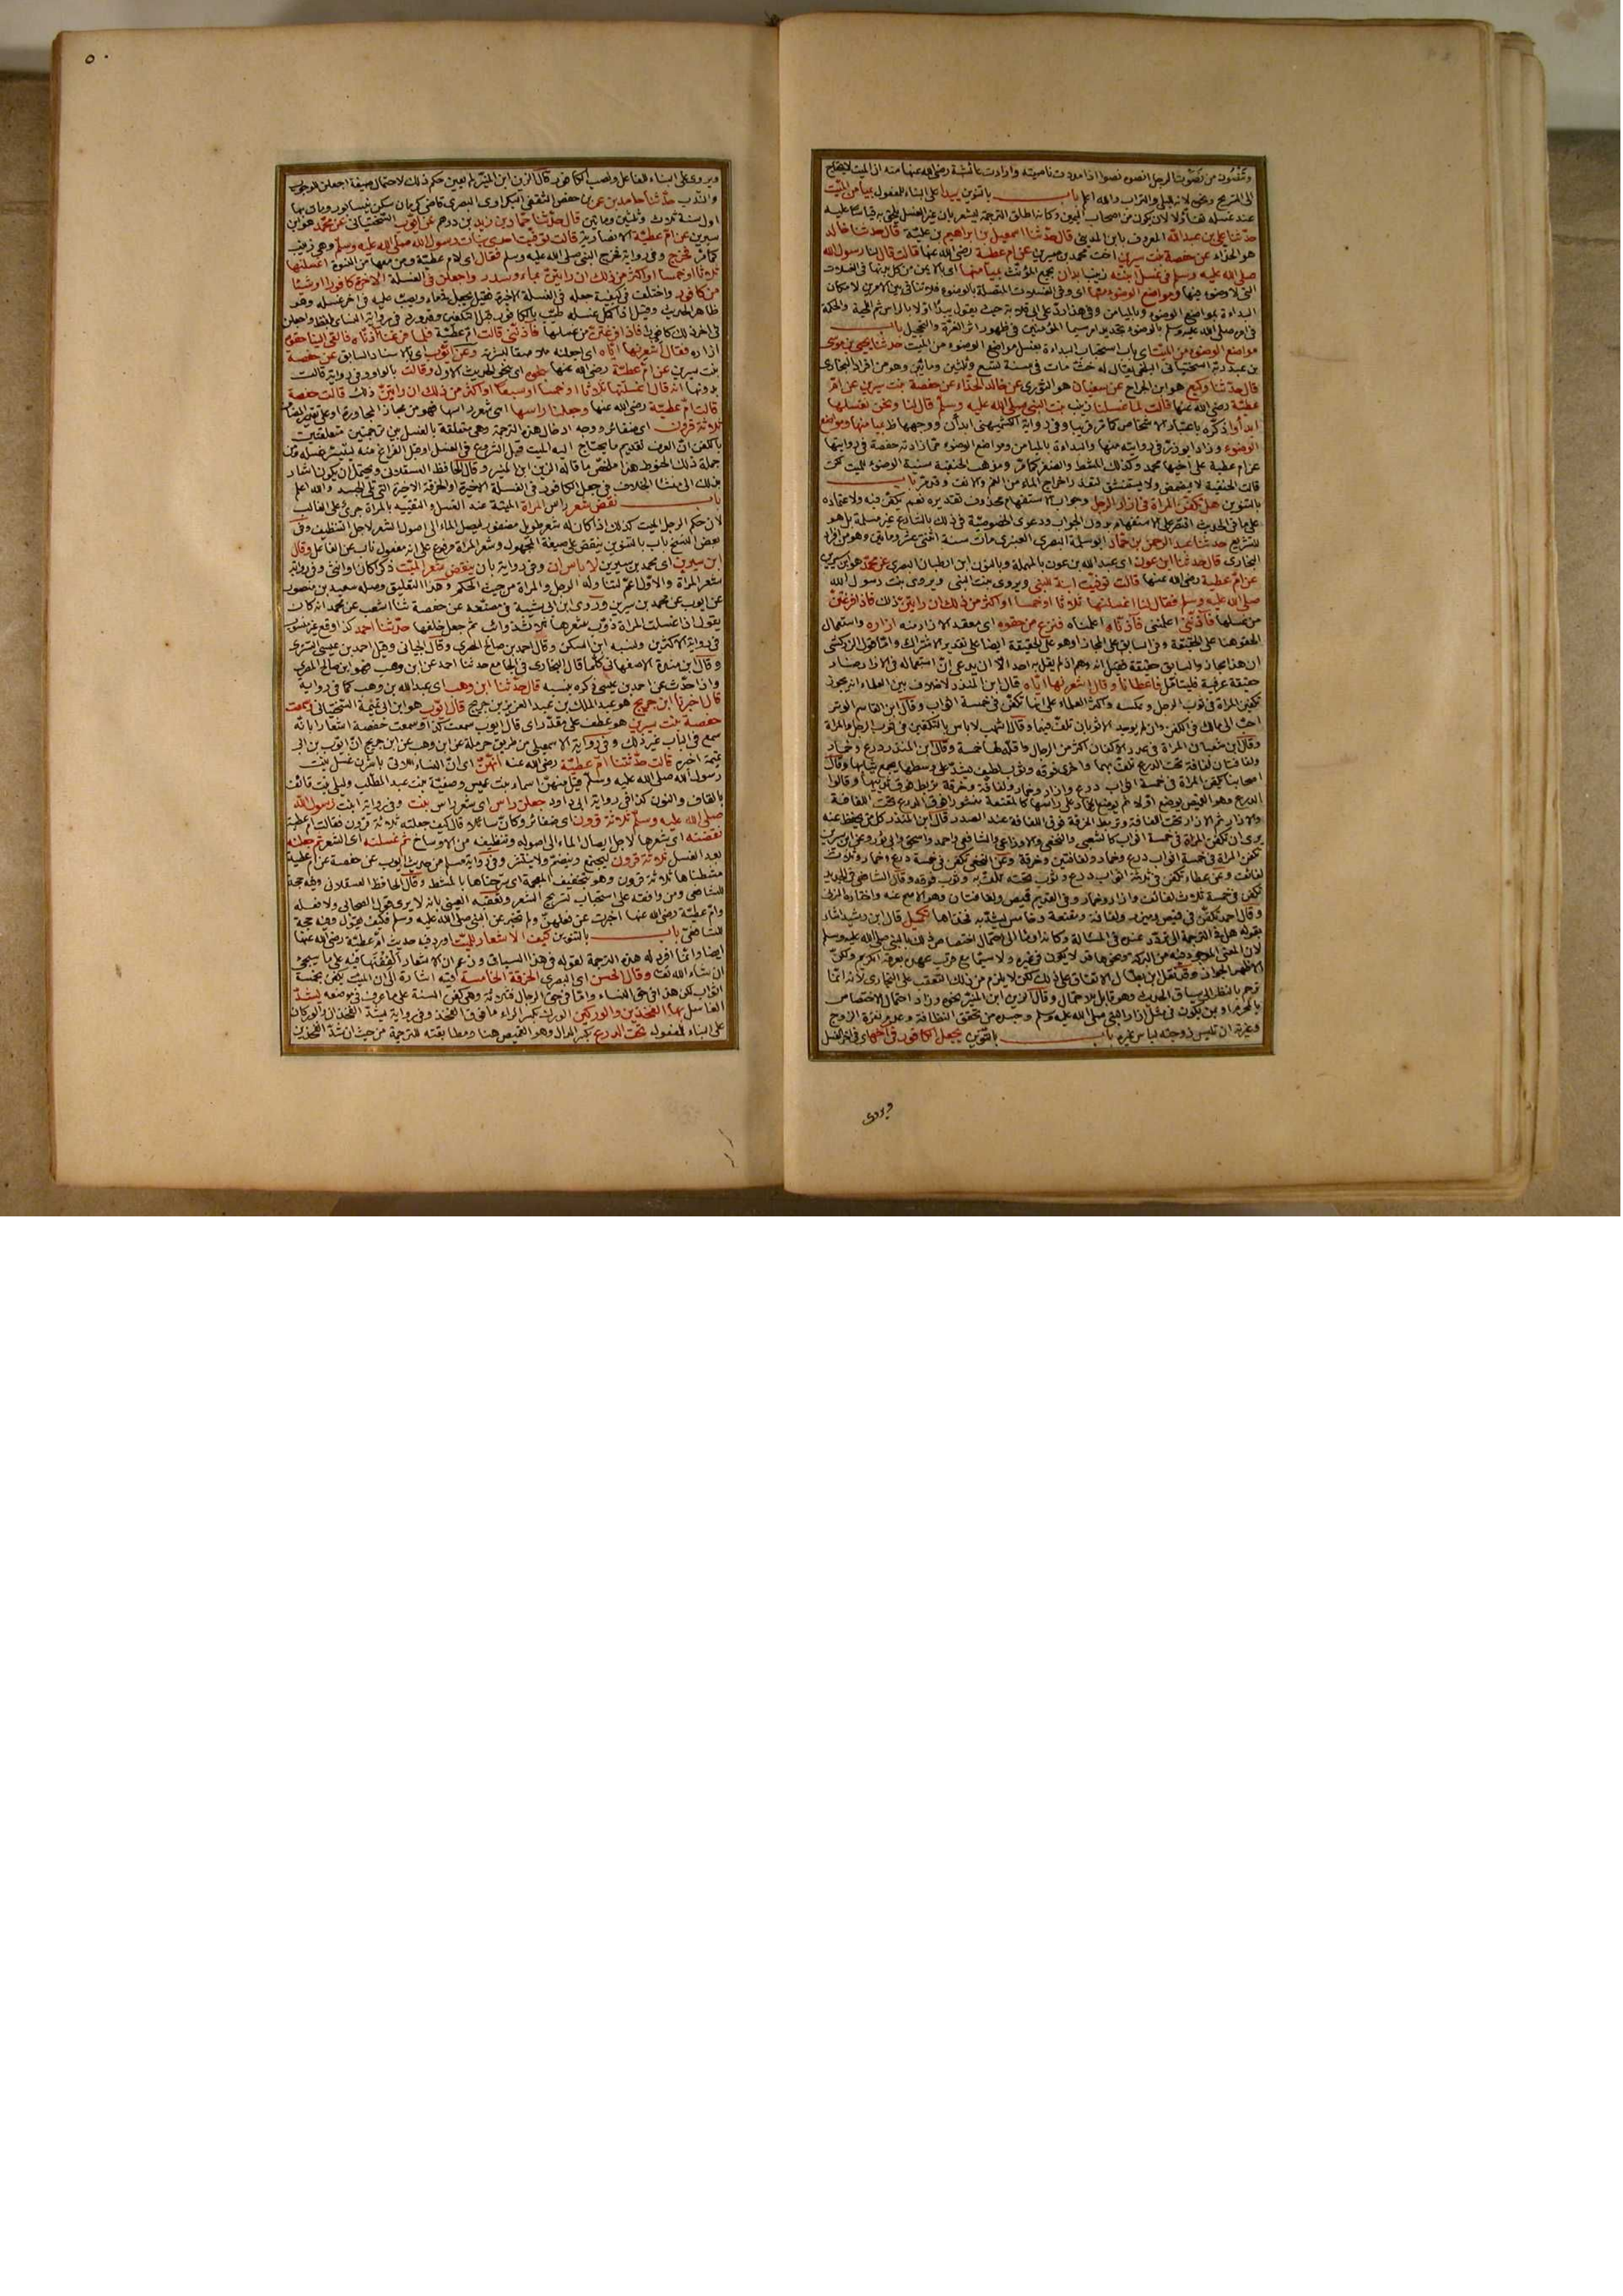 وتنصون من نصوت الرجل انصوه نصوا اذا مددت ناصيته وارادت عائشة رضي الله عنها منه ان الميت لا يحتاج
الى التسريح ونحوه لانه للبلى والتراب والله اعلم باب بالتنوين يبدأ على البناء للمفعول بميامن الميت
عند غسله تفاؤلا لان يكون من اصحاب اليمين وكانه اطلق الترجمة ليشعر بان غير الغسل يلحق به قياسا عليه
حدثنا علي بن عبد الله المعروف بابن المديني قال حدثنا اسمعيل بن ابراهيم بن علية قال حدثنا خالد
هو الحذاء عن حفصة بنت سيرين اخت محمد بن سيرين عن ام عطية رضي الله عنها قالت قال لنا رسول الله
صلى الله عليه وسلم في غسل ابنته زينب ابدأن بجمع المؤنث بميامنها اي الايمن من كل بدنها في الغسلات
التي لا وضوء فيها ومواضع الوضوء منها اي وفي الغسلات المتصلة بالوضوء فلا تنافي بين الامرين لامكان
البداءة بمواضع الوضوء وبالميامن وفي هذا رد على ابي قلابة حيث يقول يبدأ اولا بالراس ثم اللحية والحكمة
في امره صلى الله عليه وسلم بالوضوء تجديد اثر سيما المؤمنين في ظهور اثر الغرة والتحجيل باب
مواضع الوضوء من الميت اي باب استحباب البداءة بغسل مواضع الوضوء من الميت حدثنا يحيى بن موسى
بن عبد ربه السختياني البلخي يقال له خت مات في سنة تسع وثلثين ومائتين وهو من افراد البخاري
قال حدثنا وكيع هو ابن الجراح عن سفيان هو الثوري عن خالد الحذاء عن حفصة بنت سيرين عن ام
عطية رضي الله عنها قالت لما غسلنا زينب بنت النبي صلى الله عليه وسلم قال لنا ونحن نغسلها
ابدأوا ذكره باعتبار الاشخاص كما مر قريبا وفي رواية الكشميهني ابدأن ووجهها ظ بميامنها ومواضع
الوضوء وزاد ابو ذر في روايته منها والبداءة بالميامن ومواضع الوضوء مما زادته حفصة في روايتها
عن ام عطية على اخيها محمد وكذلك المشط والضفر كما مر ومذهب الحنفية سنية الوضوء للميت لكن
قالت الحنفية لا يمضمض ولا يستنشق لتعذر اخراج الماء من الفم والانف باب
بالتنوين هل تكفن المراة في ازار الرجل وجواب الاستفهام محذوف تقديره نعم تكفن فيه ولاعتماده
على ما في الحديث اقتصر على الاستفهام بدون الجواب ودعوى الخصوصية في ذلك بالشارع غير مسلمة بل هو
للتشريع حدثنا عبد الرحمن بن حماد ابو سلمة البصري العنبري مات سنة اثنتي عشرة ومائتين وهو من افراد
البخاري قال حدثنا ابن عون اي عبد الله بن عون بالمهملة وبالنون ابن ارطبان البصري عن محمد هو ابن سيرين
عن ام عطية رضي الله عنها قالت توفيت ابنة للنبي ويروى بنت النبي ويروى بنت رسول الله
صلى الله عليه وسلم فقال لنا اغسلنها ثلاثا او خمسا او اكثر من ذلك ان رايتن ذلك فاذا فرغتن
من غسلها فآذنني اعلمنني فآذناه اعلمناه فنزع من حقوه اي معقد الازار منه ازاره واستعمال
الحقو هنا على الحقيقة وفي السابق على المجاز او هو على الحقيقة ايضا على تقدير الاشتراك واما قول الزركشي
ان هذا مجاز والسابق حقيقة فقيل انه وهم اذ لم يقل به احد الا ان يدعى ان استعماله في الازار صار
حقيقة عرفية فليتامل فاعطانا وقال اشعرنها اياه قال ابن المنذر لا خلاف بين العلماء انه يجوز
تكفين المراة في ثوب الرجل وعكسه واكثر العلماء على انها تكفن في خمسة اثواب وقال ابن القاسم الوتر
احب الى مالك في الكفن وان لم يوجد الا ثوبان تلف فيهما وقال اشهب لا باس بالتكفين في ثوب الرجل والمراة
وقال ابن شعبان المراة في عدد الاكفان اكثر من الرجال واقله لها خمسة وقال ابن المنذر درع وخمار
ولفافتان لفافة تحت الدرع تلف بها واخرى فوقه وثوب لطيف يشد على وسطها يجمع ثيابها وقال
اصحابنا تكفن المراة في خمسة اثواب درع وازار وخمار ولفافة وخرقة تربط فوق ثدييها وقالوا
الدرع وهو القميص يوضع اولا ثم يوضع الخمار على راسها كالمقنعة منشورا فوق الدرع تحت اللفافة
والازار ثم الازار تحت اللفافة وتربط الخرقة فوق اللفافة عند الصدر قال ابن المنذر كل من يحفظ عنه
يرى ان تكفن المراة في خمسة اثواب كالشعبي والنخعي والاوزاعي والشافعي واحمد واسحق وابي ثور وعن ابن سيرين
تكفن المراة في خمسة اثواب درع وخمار ولفافتين وخرقة وعن النخعي تكفن في خمسة درع وخمار وثلاث
لفائف وعن عطاء تكفن في ثلاثة اثواب درع وثوب تحته تلف به وثوب فوقه وقال الشافعي في الجديد
تكفن في خمسة ثلاث لفائف وازار وخمار وفي القديم قميص ولفافتان وهو الاصح عنه واختاره المزني
وقال احمد تكفن في قميص وميزر ولفافة ومقنعة وخامس يشد به فخذاها تكميل قال ابن رشيد اشار
بقوله هل في الترجمة الى تردد عنده في المسالة وكانه اومأ الى احتمال اختصاص ذلك بالنبي صلى الله عليه وسلم
لان المعنى الموجود فيه من البركة ونحوها قد لا يكون في غيره ولا سيما مع قرب عهده بعرقه الكريم ولكن
الاظهر الجواز وقد نقل ابن بطال الاتفاق على ذلك لكن لا يلزم من ذلك التعقب على البخاري لانه انما
ترجم بالنظر الى سياق الحديث وهو قابل للاحتمال وقال الزين ابن المنير نحوه وزاد احتمال الاختصاص
بالمحرم او بمن يكون في مثل ازار النبي صلى الله عليه وسلم وجسده من تحقق النظافة وعدم نفرة الزوج
وغيرته ان تلبس زوجته لباس غيره باب بالتنوين يجعل الكافور في آخره اي في اخر الغسل
ويروى
٥٠
ويروى على البناء للفاعل ونصب الكافور قال الزين ابن المنير لم يعين حكم ذلك لاحتمال صيغة اجعلن للوجوب
والندب حدثنا حامد بن عمر بن حفص الثقفي البكراوي البصري قاضي كرمان سكن نيسابور ومات بها
اول سنة ثلاث وثلثين ومائتين قال حدثنا حماد بن زيد بن درهم عن ايوب السختياني عن محمد هو ابن
سيرين عن ام عطية الانصارية قالت توفيت احدى بنات رسول الله صلى الله عليه وسلم وهي زينب
كما مر فخرج وفي رواية فخرج النبي صلى الله عليه وسلم فقال اي لام عطية ومن معها من النسوة اغسلنها
ثلاثا او خمسا او اكثر من ذلك ان رايتن بماء وسدر واجعلن في الغسلة الاخرة كافورا او شيئا
من كافور واختلف في كيفية جعله في الغسلة الاخرة فقيل يجعل في ماء ويصب عليه في اخر غسله وهو
ظاهر الحديث وقيل اذا كمل غسله طيب بالكافور قبل التكفين وقد ورد في رواية النسائي بلفظ واجعلن
في اخر ذلك كافورا فاذا فرغتن من غسلها فآذنني قالت ام عطية فلما فرغنا آذناه فالقى الينا حقوه
ازاره فقال اشعرنها اياه اي اجعلنه ملاصقا لبشرتها وعن ايوب اي بالاسناد السابق عن حفصة
بنت سيرين عن ام عطية رضي الله عنها بنحوه اي بنحو الحديث الاول وقالت بالواو وفي رواية قالت
بدونها انه قال اغسلنها ثلاثا او خمسا او سبعا او اكثر من ذلك ان رايتن ذلك قالت حفصة
قالت ام عطية رضي الله عنها وجعلنا راسها اي شعر راسها فهو من مجاز المجاورة او على تقدير المضاف
ثلاثة قرون اي ضفائر ووجه ادخال هذه الترجمة وهي متعلقة بالغسل بين ترجمتين متعلقتين
بالكفن ان العرف تقديم ما يحتاج اليه الميت قبل الشروع في الغسل او قبل الفراغ منه ليتيسر غسله ومن
جملة ذلك الحنوط هذا ملخص ما قاله الزين ابن المنير وقال الحافظ العسقلاني ويحتمل ان يكون اشار
بذلك الى منشأ الخلاف في جعل الكافور في الغسلة الاخيرة او الخرقة الاخيرة التي تلي الجسد والله اعلم
باب نقض شعر راس المراة الميتة عند الغسل والتقييد بالمراة جرى على الغالب
لان حكم الرجل الميت كذلك اذا كان له شعر طويل مضفور ليصل الماء الى اصول الشعر لاجل التنظيف وفي
بعض النسخ باب بالتنوين ينقض على صيغة المجهول وشعر المراة مرفوع على انه مفعول ناب عن الفاعل وقال
ابن سيرين اي محمد بن سيرين لا باس ان وفي رواية بان ينقض شعر الميت ذكرا كان او انثى وفي رواية
شعر المراة والاول اعم لتناوله الرجل والمراة من حيث الحكم وهذا التعليق وصله سعيد بن منصور
عن ايوب عن محمد بن سيرين وروى ابن ابي شيبة في مصنفه عن حفصة ثنا اشعب عن محمد انه كان
يقول اذا غسلت المراة ذوب شعرها ثلاث ذوائب ثم جعل خلفها حدثنا احمد كذا وقع غير منسوب
في رواية الاكثرين ونسبه ابن السكن وقال احمد بن صالح المصري وقال الجياني وقيل احمد بن عيسى التستري
وقال ابن مندة الاصفهاني كلما قال البخاري في الجامع حدثنا احمد عن ابن وهب فهو ابن صالح المصري
واذا حدث عن احمد بن عيسى ذكره بنسبه قال حدثنا ابن وهب اي عبد الله بن وهب كما في رواية
قال اخبرنا ابن جريج هو عبد الملك بن عبد العزيز بن جريج قال ايوب هو ابن ابي تميمة السختياني وسمعت
حفصة بنت سيرين هو عطف على مقدر اي قال ايوب سمعت كذا وسمعت حفصة اشعارا بانه
سمع في الباب غير ذلك وفي رواية الاسمعيلي من طريق حرملة عن ابن وهب عن ابن جريج ان ايوب بن ابي
تميمة اخبره قالت حدثتنا ام عطية رضي الله عنه انهن اي ان النساء اللاتي باشرن غسل بنت
رسول الله صلى الله عليه وسلم قيل منهن اسماء بنت عميس وصفية بنت عبد المطلب وليلى بنت قانف
بالقاف والنون كذا في رواية ابي داود جعلن راس اي شعر راس بنت وفي رواية ابنت رسول الله
صلى الله عليه وسلم ثلاثة قرون اي ضفائر وكان سائلا قال كيف جعلته ثلاثة قرون فقالت ام عطية
نقضنه اي شعرها لاجل ايصال الماء الى اصوله وتنظيفه من الاوساخ ثم غسلنه اي الشعر ثم جعلنه
بعد الغسل ثلاثة قرون ليجتمع وينضم ولا ينتشر وفي رواية مسلم من حديث ايوب عن حفصة عن ام عطية
مشطناها ثلاثة قرون وهو بتخفيف المعجمة اي سرحناها بالمشط وقال الحافظ العسقلاني وفيه حجة
للشافعي ومن وافقه على استحباب تسريح الشعر وتعقبه العيني بانه لا يرى قول الصحابي ولا فعله
وام عطية رضي الله عنها اخبرت عن فعلهن ولم تخبر عن النبي صلى الله عليه وسلم فكيف يقول وفيه حجة
للشافعي باب بالتنوين كيف الاشعار للميت اورد فيه حديث ام عطية رضي الله عنها
ايضا وانما افرد له هذه الترجمة لقوله في هذا السياق وزعم ان الاشعار الففنها فيه على ما سيجئ
ان شاء الله تعالى وقال الحسن اي البصري الخرقة الخامسة فيه اشارة الى ان الميت يكفن بخمسة
اثواب لكن هذا في حق النساء واما في حق الرجال فثلاثة وهو كفن السنة على ما عرف في موضعه يشد
الغاسل بها الفخذين والوركين الورك بكسر الراء ما فوق الفخذ وفي رواية يشد الفخذان والوركان
على البناء للمفعول تحت الدرع بكسر الدال وهو القميص هنا ومطابقته للترجمة من حيث ان شد الفخذين